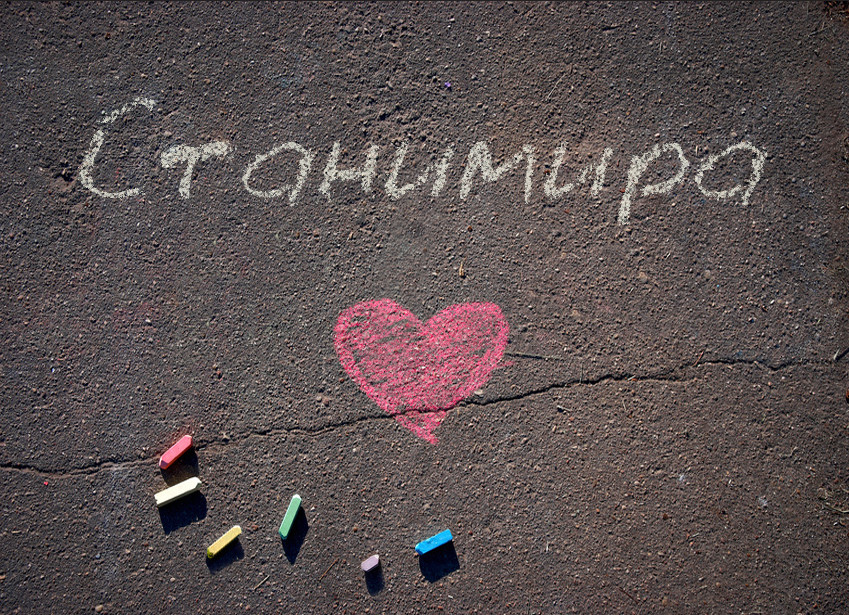 Станимира